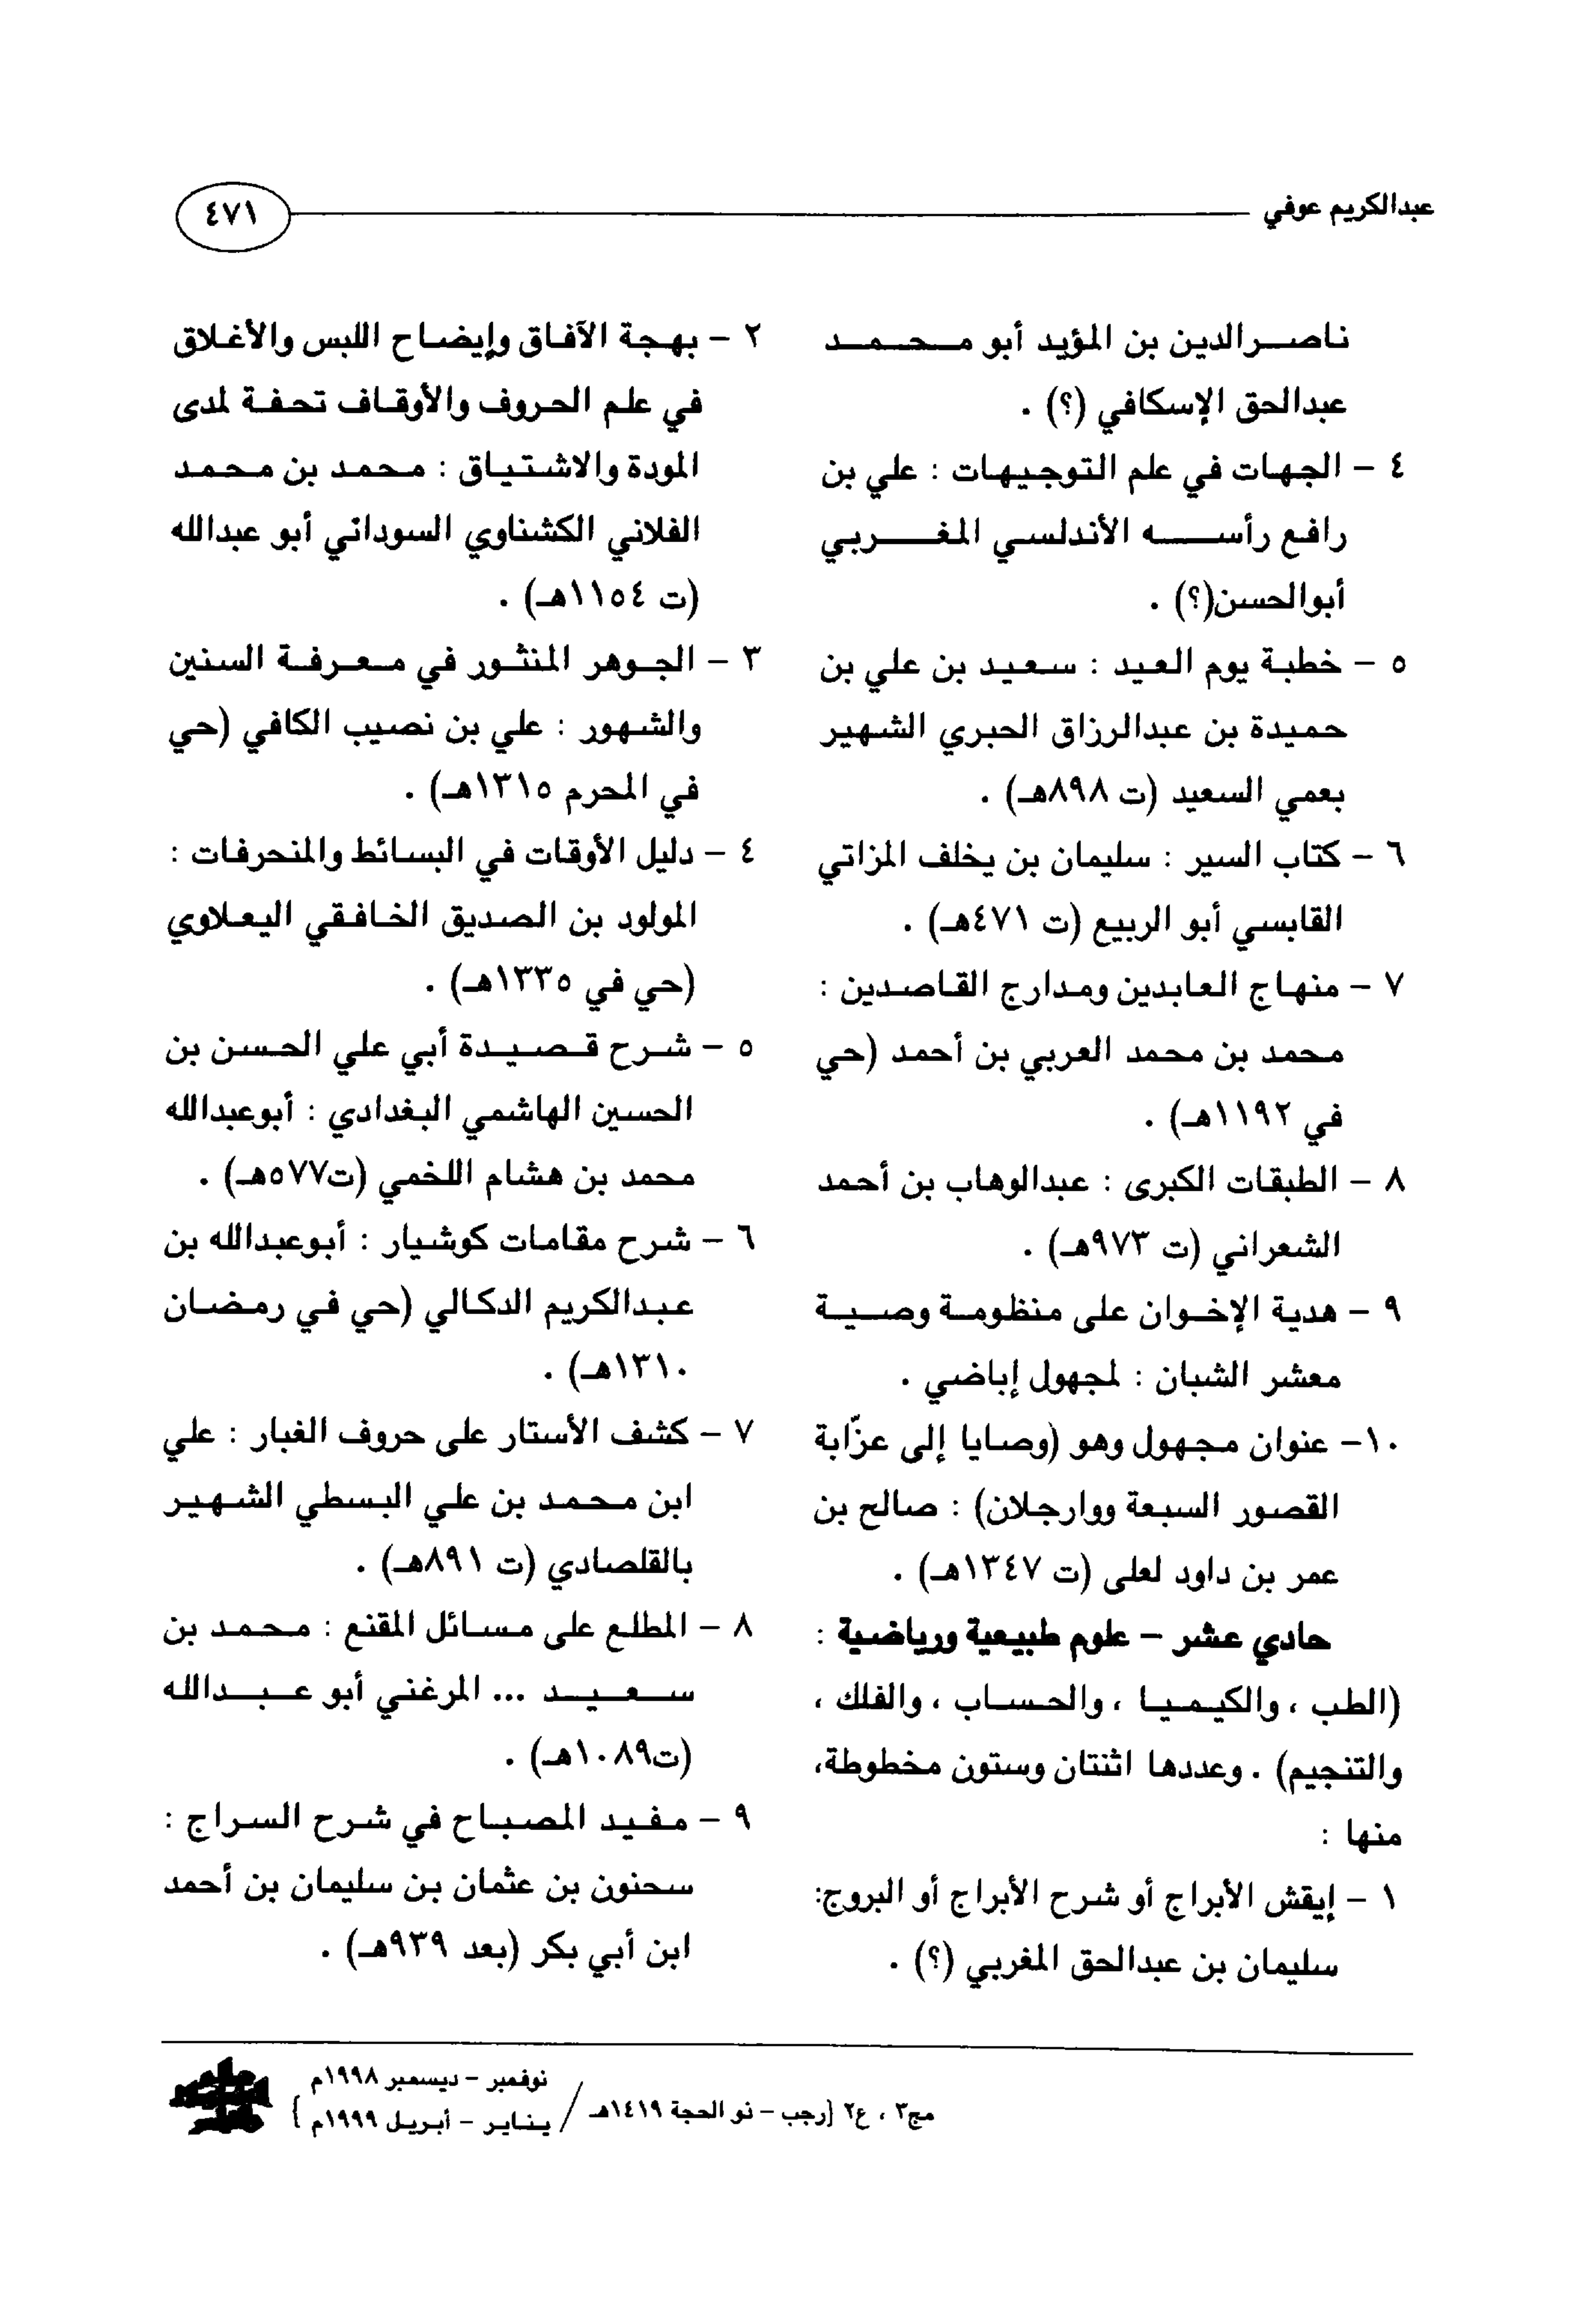 عبدالكريم عوفي
٤٧١
ناصرالدين بن المؤيد أبو محمد
عبدالحق الإسكافي (؟) .
٤ – الجهات في علم التوجيهات : علي بن
رافع رأسه الأندلسي المغربي
أبوالحسن(؟) .
٥ – خطبة يوم العيد : سعيد بن علي بن
حميدة بن عبدالرزاق الحبري الشهير
بعمي السعيد (ت ٨٩٨هـ) .
٦ – كتاب السير : سليمان بن يخلف المزاتي
القابسي أبو الربيع (ت ٤٧١هـ) .
٧ – منهاج العابدين ومدارج القاصدين :
محمد بن محمد العربي بن أحمد (حي
في ١١٩٢هـ) .
٨ – الطبقات الكبرى : عبدالوهاب بن أحمد
الشعراني (ت ٩٧٣هـ) .
٩ – هدية الإخوان على منظومة وصية
معشر الشبان : لمجهول إباضي .
١٠– عنوان مجهول وهو (وصايا إلى عزّابة
القصور السبعة ووارجلان) : صالح بن
عمر بن داود لعلى (ت ١٣٤٧هـ) .
حادي عشر – علوم طبيعية ورياضية :
(الطب ، والكيميا ، والحساب ، والفلك ،
والتنجيم) . وعددها اثنتان وستون مخطوطة،
منها :
١ – إيقش الأبراج أو شرح الأبراج أو البروج:
سليمان بن عبدالحق المغربي (؟) .
٢ – بهجة الآفاق وإيضاح اللبس والأغلاق
في علم الحروف والأوقاف تحفة لمدى
المودة والاشتياق : محمد بن محمد
الفلاني الكشناوي السوداني أبو عبدالله
(ت ١١٥٤هـ) .
٣ – الجوهر المنثور في معرفة السنين
والشهور : علي بن نصيب الكافي (حي
في المحرم ١٣١٥هـ) .
٤ – دليل الأوقات في البسائط والمنحرفات :
المولود بن الصديق الخافقي اليعلاوي
(حي في ١٣٣٥هـ) .
٥ – شرح قصيدة أبي علي الحسن بن
الحسين الهاشمي البغدادي : أبوعبدالله
محمد بن هشام اللخمي (ت٥٧٧هـ) .
٦ – شرح مقامات كوشيار : أبوعبدالله بن
عبدالكريم الدكالي (حي في رمضان
١٣١٠هـ) .
٧ – كشف الأستار على حروف الغبار : علي
ابن محمد بن علي البسطي الشهير
بالقلصادي (ت ٨٩١هـ) .
٨ – المطلع على مسائل المقنع : محمد بن
سعيد ... المرغني أبو عبدالله
(ت١٠٨٩هـ) .
٩ – مفيد المصباح في شرح السراج :
سحنون بن عثمان بن سليمان بن أحمد
ابن أبي بكر (بعد ٩٣٩هـ) .
مج٣ ، ع٢ {رجب – نو الحجة ١٤١٩هـ / نوفمبر – ديسمبر ١٩٩٨م
يناير – أبريل ١٩٩٩م }